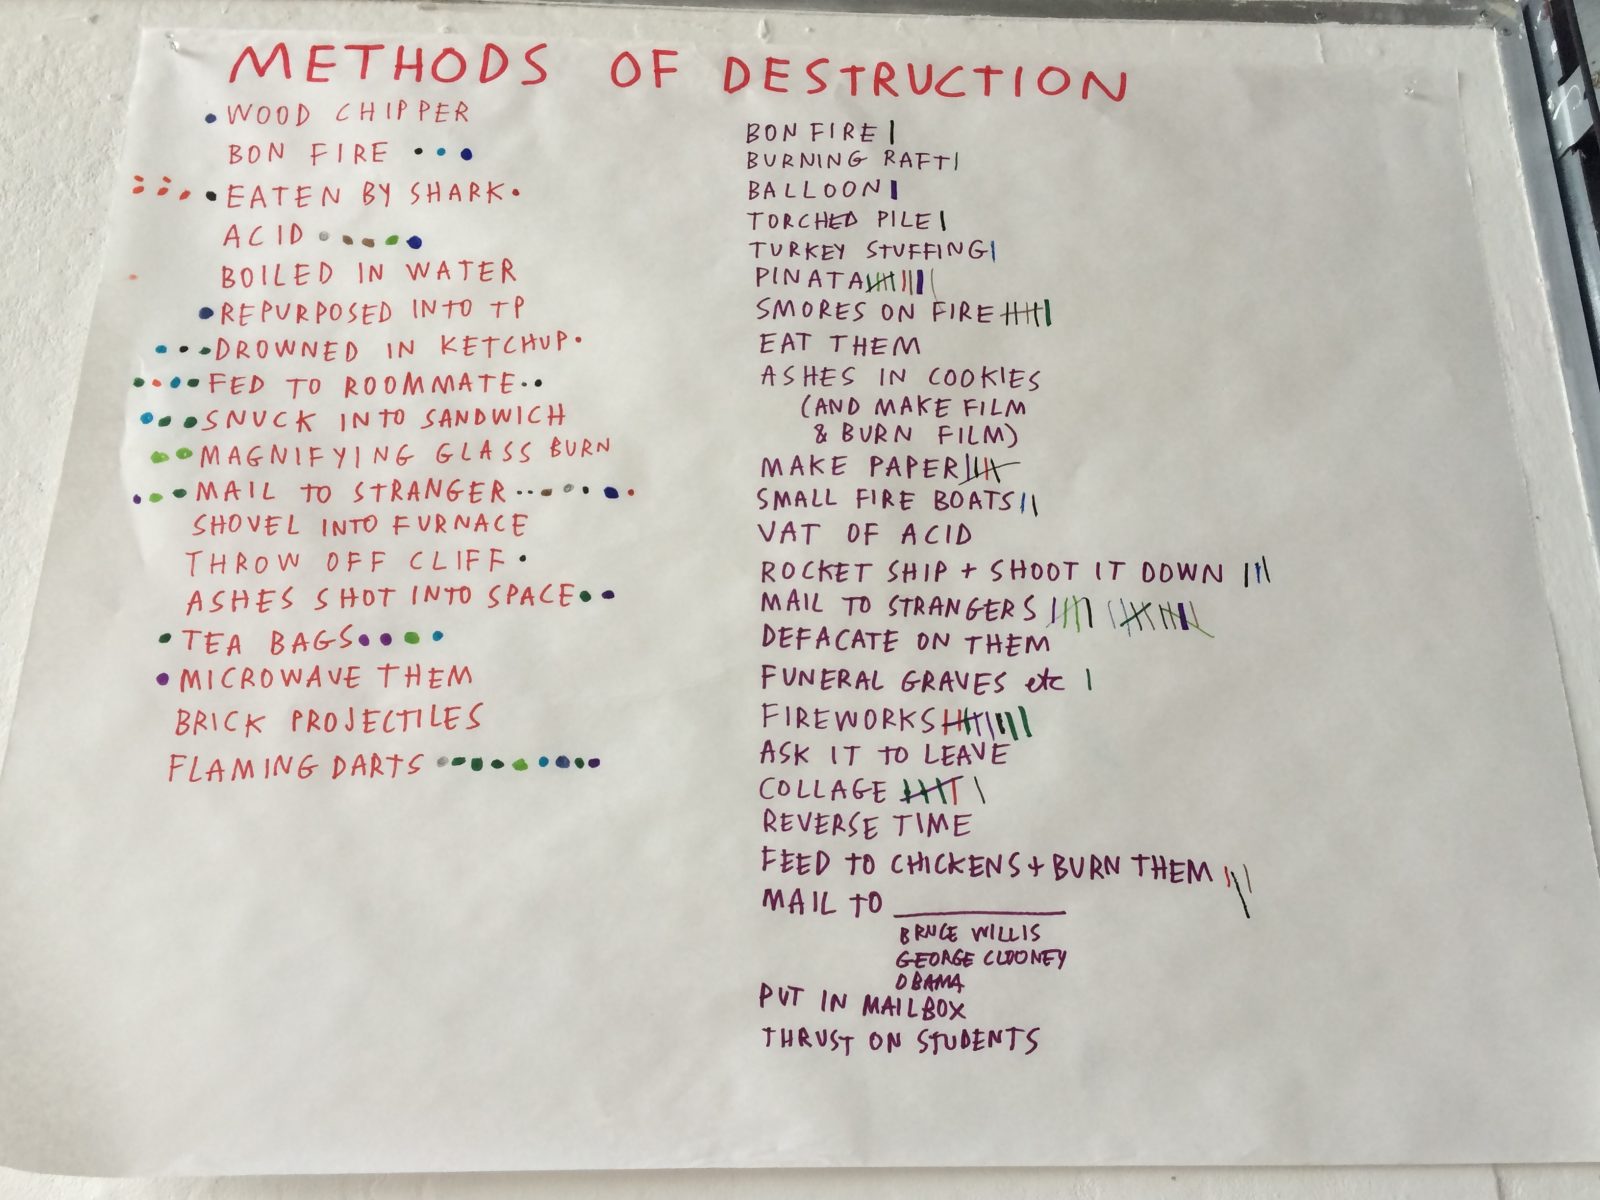 METHODS OF DESTRUCTION
WOOD CHIPPER
BON FIRE
EATEN BY SHARK
ACID
BOILED IN WATER
REPURPOSED INTO TP
DROWNED IN KETCHUP
FED TO ROOMMATE
SNUCK INTO SANDWICH
MAGNIFYING GLASS BURN
MAIL TO STRANGER
SHOVEL INTO FURNACE
THROW OFF CLIFF
ASHES SHOT INTO SPACE
TEA BAGS
MICROWAVE THEM
BRICK PROJECTILES
FLAMING DARTS
BON FIRE
BURNING RAFT
BALLOON
TORCHED PILE
TURKEY STUFFING
PINATA
SMORES ON FIRE
EAT THEM
ASHES IN COOKIES
(AND MAKE FILM
& BURN FILM)
MAKE PAPER
SMALL FIRE BOATS
VAT OF ACID
ROCKET SHIP + SHOOT IT DOWN
MAIL TO STRANGERS
DEFACATE ON THEM
FUNERAL GRAVES etc
FIREWORKS
ASK IT TO LEAVE
COLLAGE
REVERSE TIME
FEED TO CHICKENS + BURN THEM
MAIL TO
BRUCE WILLIS
GEORGE CLOONEY
OBAMA
PUT IN MAILBOX
THRUST ON STUDENTS